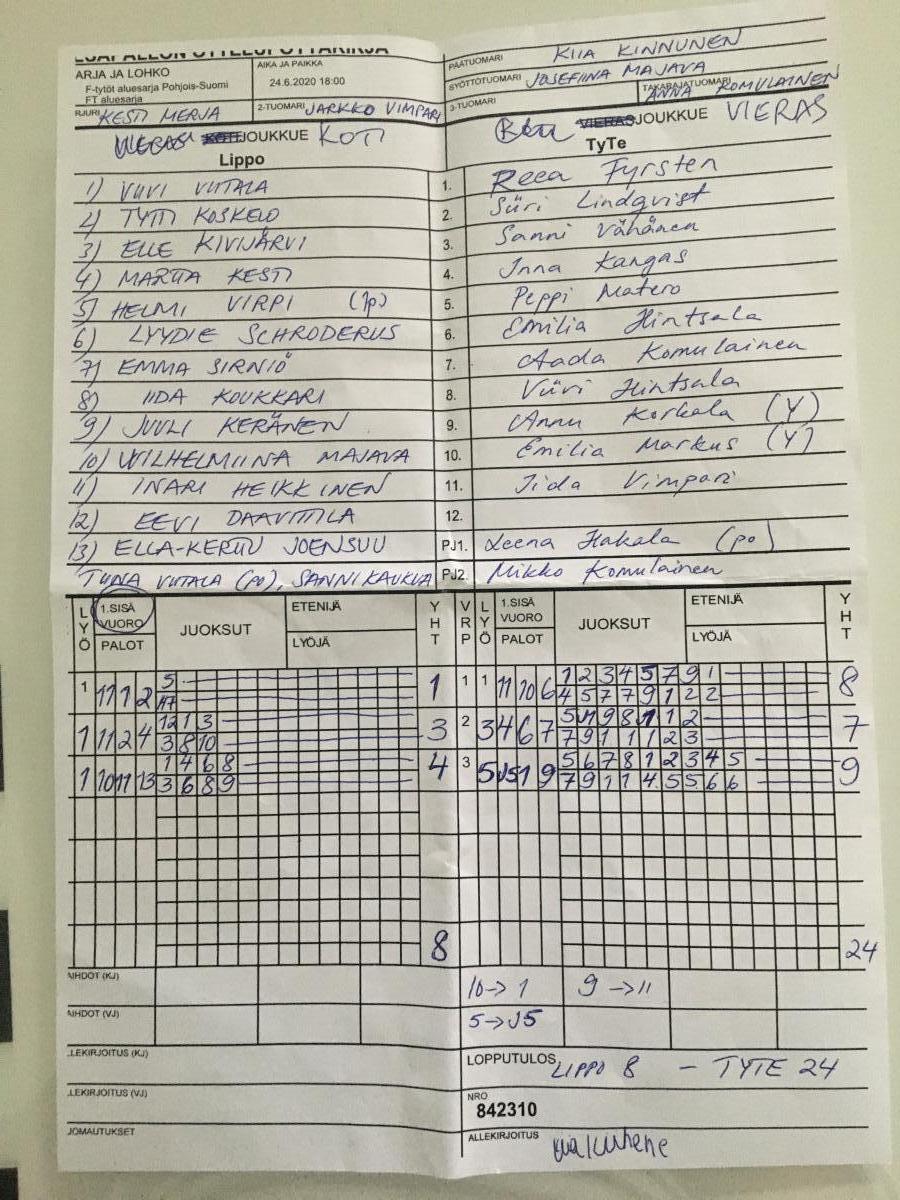 PESÄPALLON OTTELUPÖYTÄKIRJA
SARJA JA LOHKO
F-tytöt aluesarja Pohjois-Suomi
FT aluesarja
AIKA JA PAIKKA
24.6.2020 18:00
PÄÄTUOMARI KIIA KINNUNEN
SYÖTTÖTUOMARI JOSEFIINA MAJAVA
TAKARAJATUOMARI ANNA ROMULAINEN
KESTI MERJA
2-TUOMARI JARKKO VIMPARI
3-TUOMARI
VIERAS KOTIJOUKKUE KOTI
Lippo
VIERASJOUKKUE VIERAS
TyTe
1) VIIVI VIITALA
2) TYTTI KOSKELO
3) ELLE KIVIJÄRVI
4) MARTTA KESTI
5) HELMI VIRPI (Jp)
6) LYYDIE SCHRODERUS
7) EMMA SIRNIÖ
8) IIDA KOUKKARI
9) JUULI KERÄNEN
10) WILHELMIINA MAJAVA
11) INARI HEIKKINEN
12) EEVI DAAVITTILA
13) ELLA-KERTTU JOENSUU
TIINA VIITALA (po), SANNI KAUKUA
1. Reea Fyrsten
2. Siiri Lindqvist
3. Sanni Vähänen
4. Inna Kangas
5. Peppi Matero
6. Emilia Hintsala
7. Aada Komulainen
8. Viivi Hintsala
9. Annu Korkala (Y)
10. Emilia Markus (Y)
11. Iida Vimpari
12.
PJ1. Leena Hakala (po)
PJ2. Mikko Komulainen
LYÖ 1.SISÄ VUORO PALOT JUOKSUT ETENIJÄ LYÖJÄ YHT VRP LYÖ 1.SISÄ VUORO PALOT JUOKSUT ETENIJÄ LYÖJÄ YHT
1 11 1 2 5 1 1 1 11 10 6 1 2 3 4 5 7 9 1 8
4 5 7 7 9 1 2 2
1 11 2 4 12 1 3 3 2 3 4 6 7 7
3 8 10 7 9 1 1 1 2 3
1 10 11 13 1 4 6 8 4 3 5 J5 1 9 5 6 7 8 1 2 3 4 5 9
3 6 8 9 7 9 1 1 4 5 5 6 6
8 24
VAIHDOT (KJ) 10→1 9→11
VAIHDOT (VJ) 5→J5
ALLEKIRJOITUS (KJ)
LOPPUTULOS LIPPO 8 - TYTE 24
ALLEKIRJOITUS (VJ)
NRO
842310
HUOMAUTUKSET
ALLEKIRJOITUS